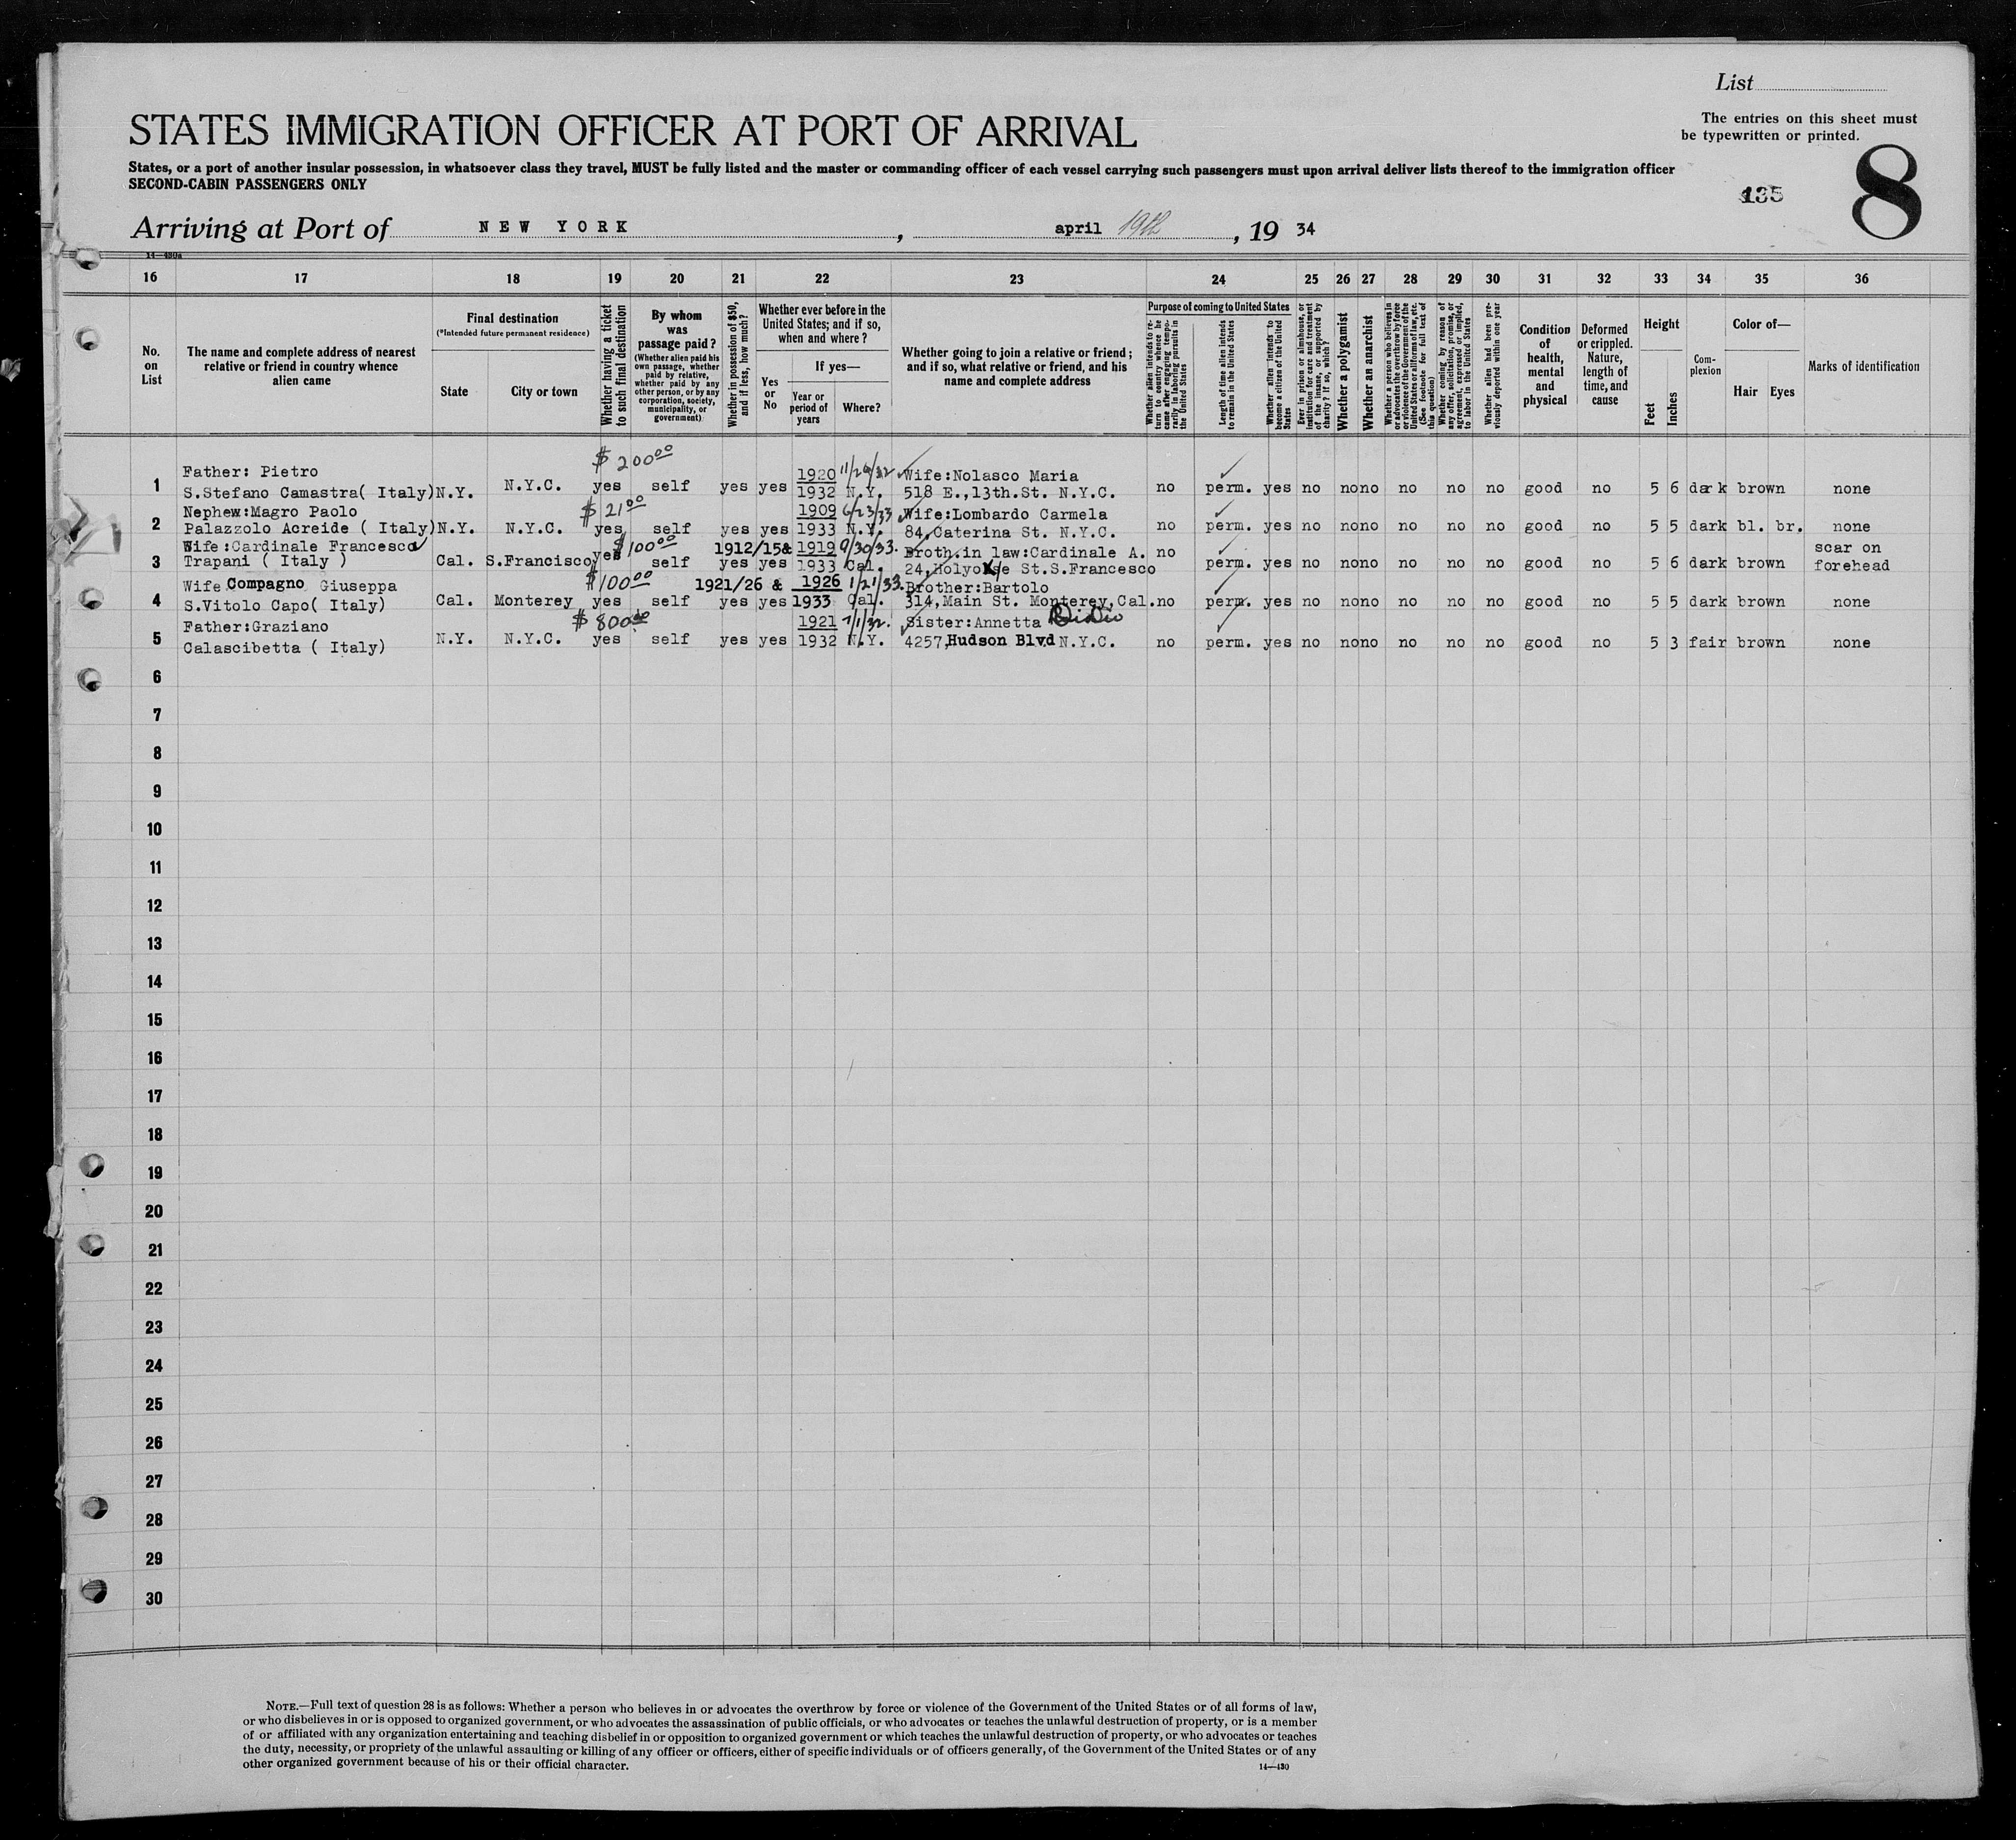 List
The entries on this sheet must
be typewritten or printed.
STATES IMMIGRATION OFFICER AT PORT OF ARRIVAL
States, or a port of another insular possession, in whatsoever class they travel, MUST be fully listed and the master or commanding officer of each vessel carrying such passengers must upon arrival deliver lists thereof to the immigration officer
SECOND-CABIN PASSENGERS ONLY
135
8
Arriving at Port of NEW YORK, april 19th, 19 34
14—430a
16 17 18 19 20 21 22 23 24 25 26 27 28 29 30 31 32 33 34 35 36
No. on List
The name and complete address of nearest relative or friend in country whence alien came
Final destination
(*Intended future permanent residence)
State
City or town
Whether having a ticket to such final destination
By whom was passage paid?
(Whether alien paid his own passage, whether paid by relative, whether paid by any other person, or by any corporation, society, municipality, or government)
Whether in possession of $50, and if less, how much?
Whether ever before in the United States; and if so, when and where?
Yes or No
If yes—
Year or period of years
Where?
Whether going to join a relative or friend; and if so, what relative or friend, and his name and complete address
Purpose of coming to United States
Whether alien intends to return to country whence he came after engaging temporarily in laboring pursuits in the United States
Length of time alien intends to remain in the United States
Whether alien intends to become a citizen of the United States
Ever in prison or almshouse, or institution for care and treatment of the insane, or supported by charity? If so, which?
Whether a polygamist
Whether an anarchist
Whether a person who believes in or advocates the overthrow by force or violence of the Government of the United States or all forms of law, etc. (See footnote for full text of this question)
Whether coming by reason of any offer, solicitation, promise, or agreement, expressed or implied, to labor in the United States
Whether alien had been previously deported within one year
Condition of health, mental and physical
Deformed or crippled. Nature, length of time, and cause
Height
Feet
Inches
Complexion
Color of—
Hair Eyes
Marks of identification
$ 200 00
Father: Pietro 1920 11/29/32 Wife:Nolasco Maria
1 S.Stefano Camastra( Italy) N.Y. N.Y.C. yes self yes yes 1932 N.Y. 518 E.,13th.St. N.Y.C. no perm. yes no no no no no no good no 5 6 dark brown none
$ 21 00
Nephew:Magro Paolo 1909 6/23/33 Wife:Lombardo Carmela
2 Palazzolo Acreide ( Italy) N.Y. N.Y.C. yes self yes yes 1933 N.Y. 84,Caterina St. N.Y.C. no perm. yes no no no no no no good no 5 5 dark bl. br. none
$100 00
Wife:Cardinale Francesca 1912/15& 1919 9/30/33. Broth.in law:Cardinale A. scar on
3 Trapani ( Italy ) Cal. S.Francisco yes self yes yes 1933 Cal. 24,Holyoke St.S.Francesco no perm. yes no no no no no no good no 5 6 dark brown forehead
$100 00
Wife Compagno Giuseppa 1921/26 & 1926 1/21/33. Brother:Bartolo
4 S.Vitolo Capo( Italy) Cal. Monterey yes self yes yes 1933 Cal. 314,Main St. Monterey,Cal. no perm. yes no no no no no no good no 5 5 dark brown none
$ 800 00
Father:Graziano 1921 7/1/32. Sister:Annetta DiDio
5 Calascibetta ( Italy) N.Y. N.Y.C. yes self yes yes 1932 N.Y. 4257,Hudson Blvd N.Y.C. no perm. yes no no no no no no good no 5 3 fair brown none
6
7
8
9
10
11
12
13
14
15
16
17
18
19
20
21
22
23
24
25
26
27
28
29
30
NOTE.—Full text of question 28 is as follows: Whether a person who believes in or advocates the overthrow by force or violence of the Government of the United States or of all forms of law,
or who disbelieves in or is opposed to organized government, or who advocates the assassination of public officials, or who advocates or teaches the unlawful destruction of property, or is a member
of or affiliated with any organization entertaining and teaching disbelief in or opposition to organized government or which teaches the unlawful destruction of property, or who advocates or teaches
the duty, necessity, or propriety of the unlawful assaulting or killing of any officer or officers, either of specific individuals or of officers generally, of the Government of the United States or of any
other organized government because of his or their official character.
14—430